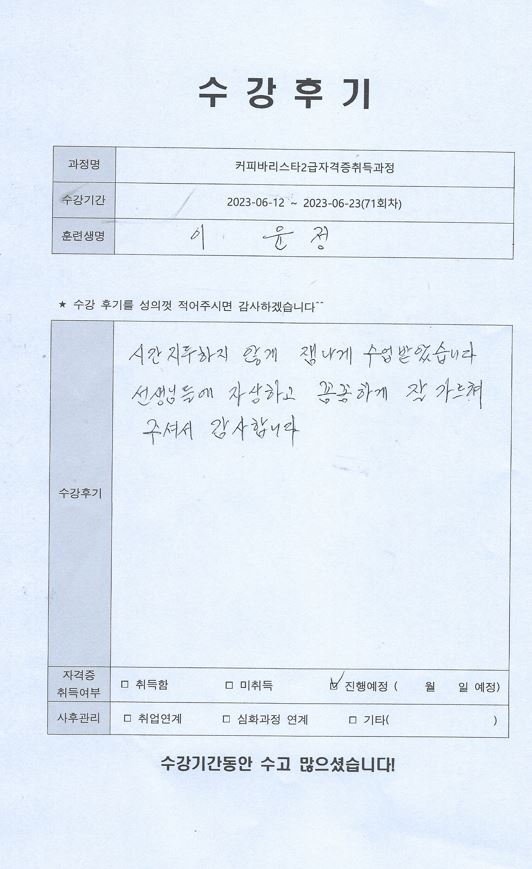 수 강 후 기
과정명 커피바리스타2급자격증취득과정
수강기간 2023-06-12 ~ 2023-06-23(71회차)
훈련생명 이 윤 정
★ 수강 후기를 성의껏 적어주시면 감사하겠습니다^^
시간 지루하지 않게 잼나게 수업받았습니다
선생님들에 자상하고 꼼꼼하게 잘 가르쳐
주셔서 감사합니다
수강후기
자격증
취득여부 □ 취득함 □ 미취득 ☑ 진행예정 ( 월 일 예정)
사후관리 □ 취업연계 □ 심화과정 연계 □ 기타( )
수강기간동안 수고 많으셨습니다!